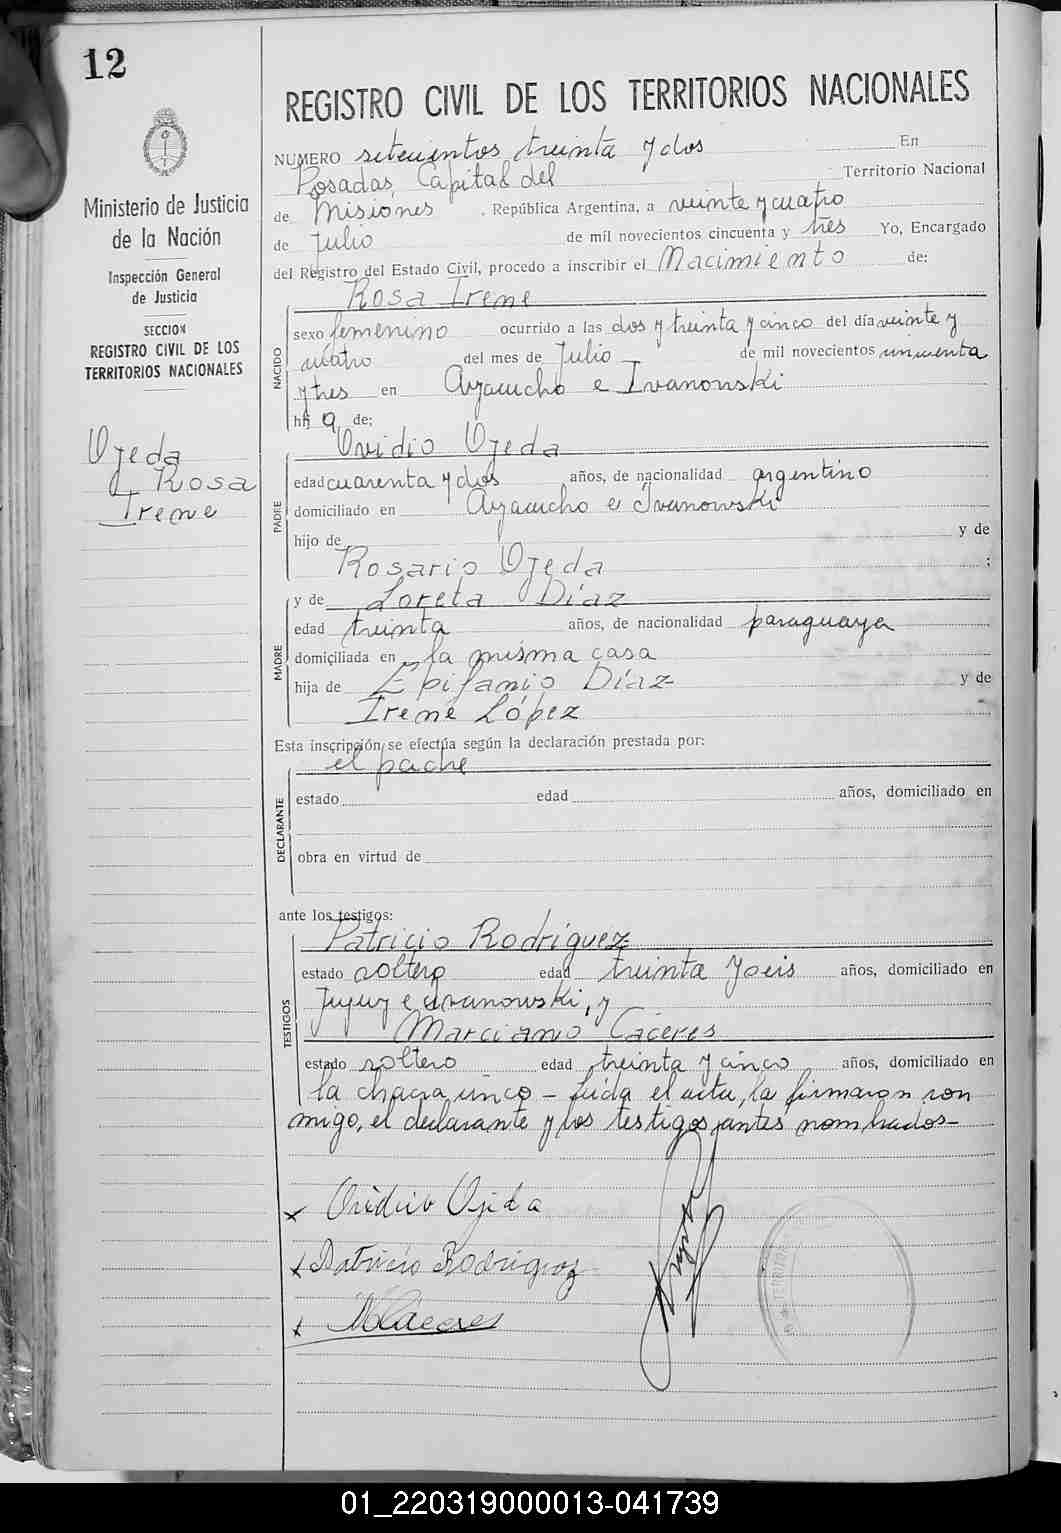 12
Ministerio de Justicia
de la Nación
Inspección General
de Justicia
SECCION
REGISTRO CIVIL DE LOS
TERRITORIOS NACIONALES
Ojeda
Rosa
Irene
REGISTRO CIVIL DE LOS TERRITORIOS NACIONALES
NUMERO setecientos treinta y dos En
Posadas, Capital del Territorio Nacional
de Misiones, República Argentina, a veinte y cuatro
de Julio de mil novecientos cincuenta y tres Yo, Encargado
del Registro del Estado Civil, procedo a inscribir el Nacimiento de:
Rosa Irene
NACIDO
sexo femenino ocurrido a las dos y treinta y cinco del día veinte y
cuatro del mes de Julio de mil novecientos cincuenta
y tres en Ayacucho e Ivanowski
hij a de:
Ovidio Ojeda
PADRE
edad cuarenta y dos años, de nacionalidad argentino
domiciliado en Ayacucho e Ivanowski
hijo de y de
Rosario Ojeda :
y de Loreta Díaz
MADRE
edad treinta años, de nacionalidad paraguaya
domiciliada en la misma casa
hija de Epifanio Díaz y de
Irene López
Esta inscripción se efectúa según la declaración prestada por:
el padre
DECLARANTE
estado edad años, domiciliado en
obra en virtud de
ante los testigos:
Patricio Rodríguez
TESTIGOS
estado soltero edad treinta y seis años, domiciliado en
Jujuy e Ivanowski, y
Marciano Cáceres
estado soltero edad treinta y cinco años, domiciliado en
la chacra cinco – Leida el acta, la firmaron con
migo, el declarante y los testigos antes nombrados–
x Ovidio Ojeda
x Patricio Rodriguez
x M Cáceres
TERRITOR
01_220319000013-041739